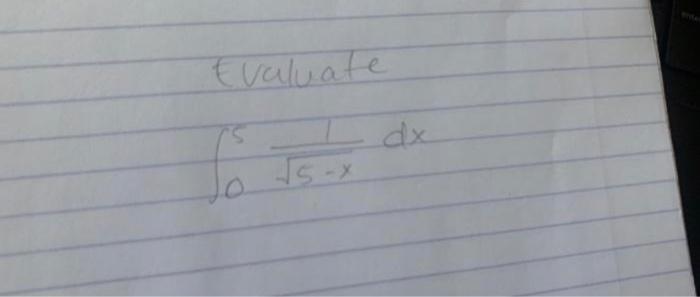 Evaluate
∫₀⁵ 1/√(5-x) dx